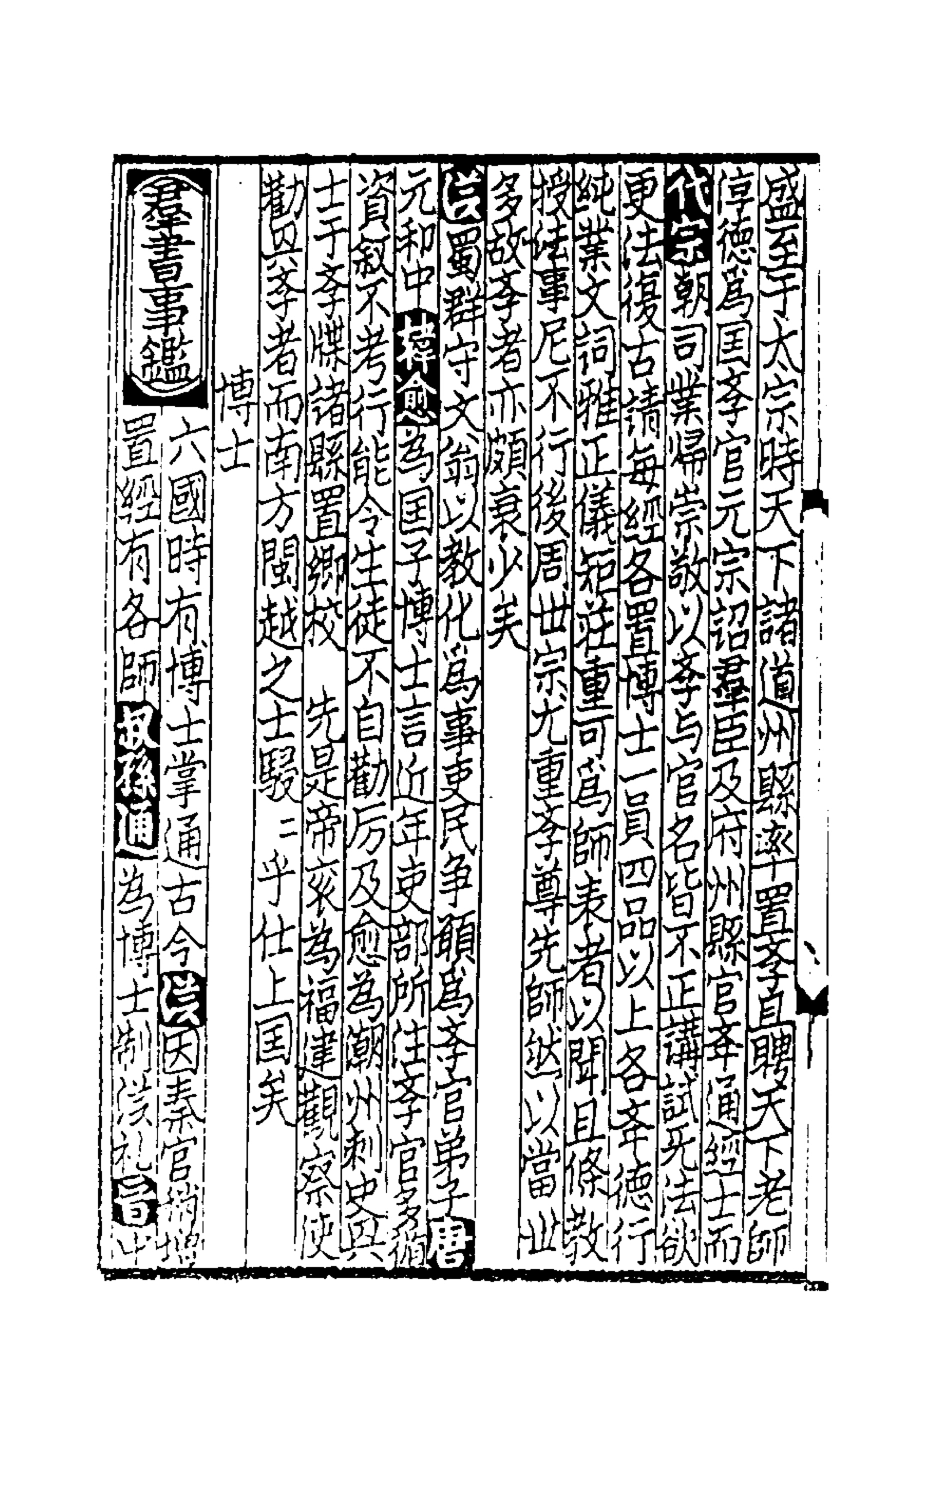 盛至于太宗時天下諸道州縣率置斈自聘天下老師
淳德爲国斈官元宗詔羣臣及府州縣官斈通經士而
代宗朝司業歸崇敬以斈与官名皆不正講試旡法欲
更法復古請每經各置博士一員四品以上各斈德行
純業文詞雅正儀矩莊重可爲師表者以聞且條教
授法事尼不行後周世宗尤重斈尊先師然以當世
多故斈者亦頗衰少矣
汉蜀群守文翁以教化爲事吏民争願爲斈官弟子唐
元和中韓愈為国子博士言近年吏部所注斈官多循
資叙不考行能令生徒不自勸厉及愈為潮州刺史與
士于斈牒諸縣置鄉校 先是帝衮為福建觀察使
勸其斈者而南方閩越之士駸二乎仕上国矣
博士
羣書事鑑
六國時有博士掌通古今汉因秦官稍增
置經有各師叔孫通為博士制汉礼晋